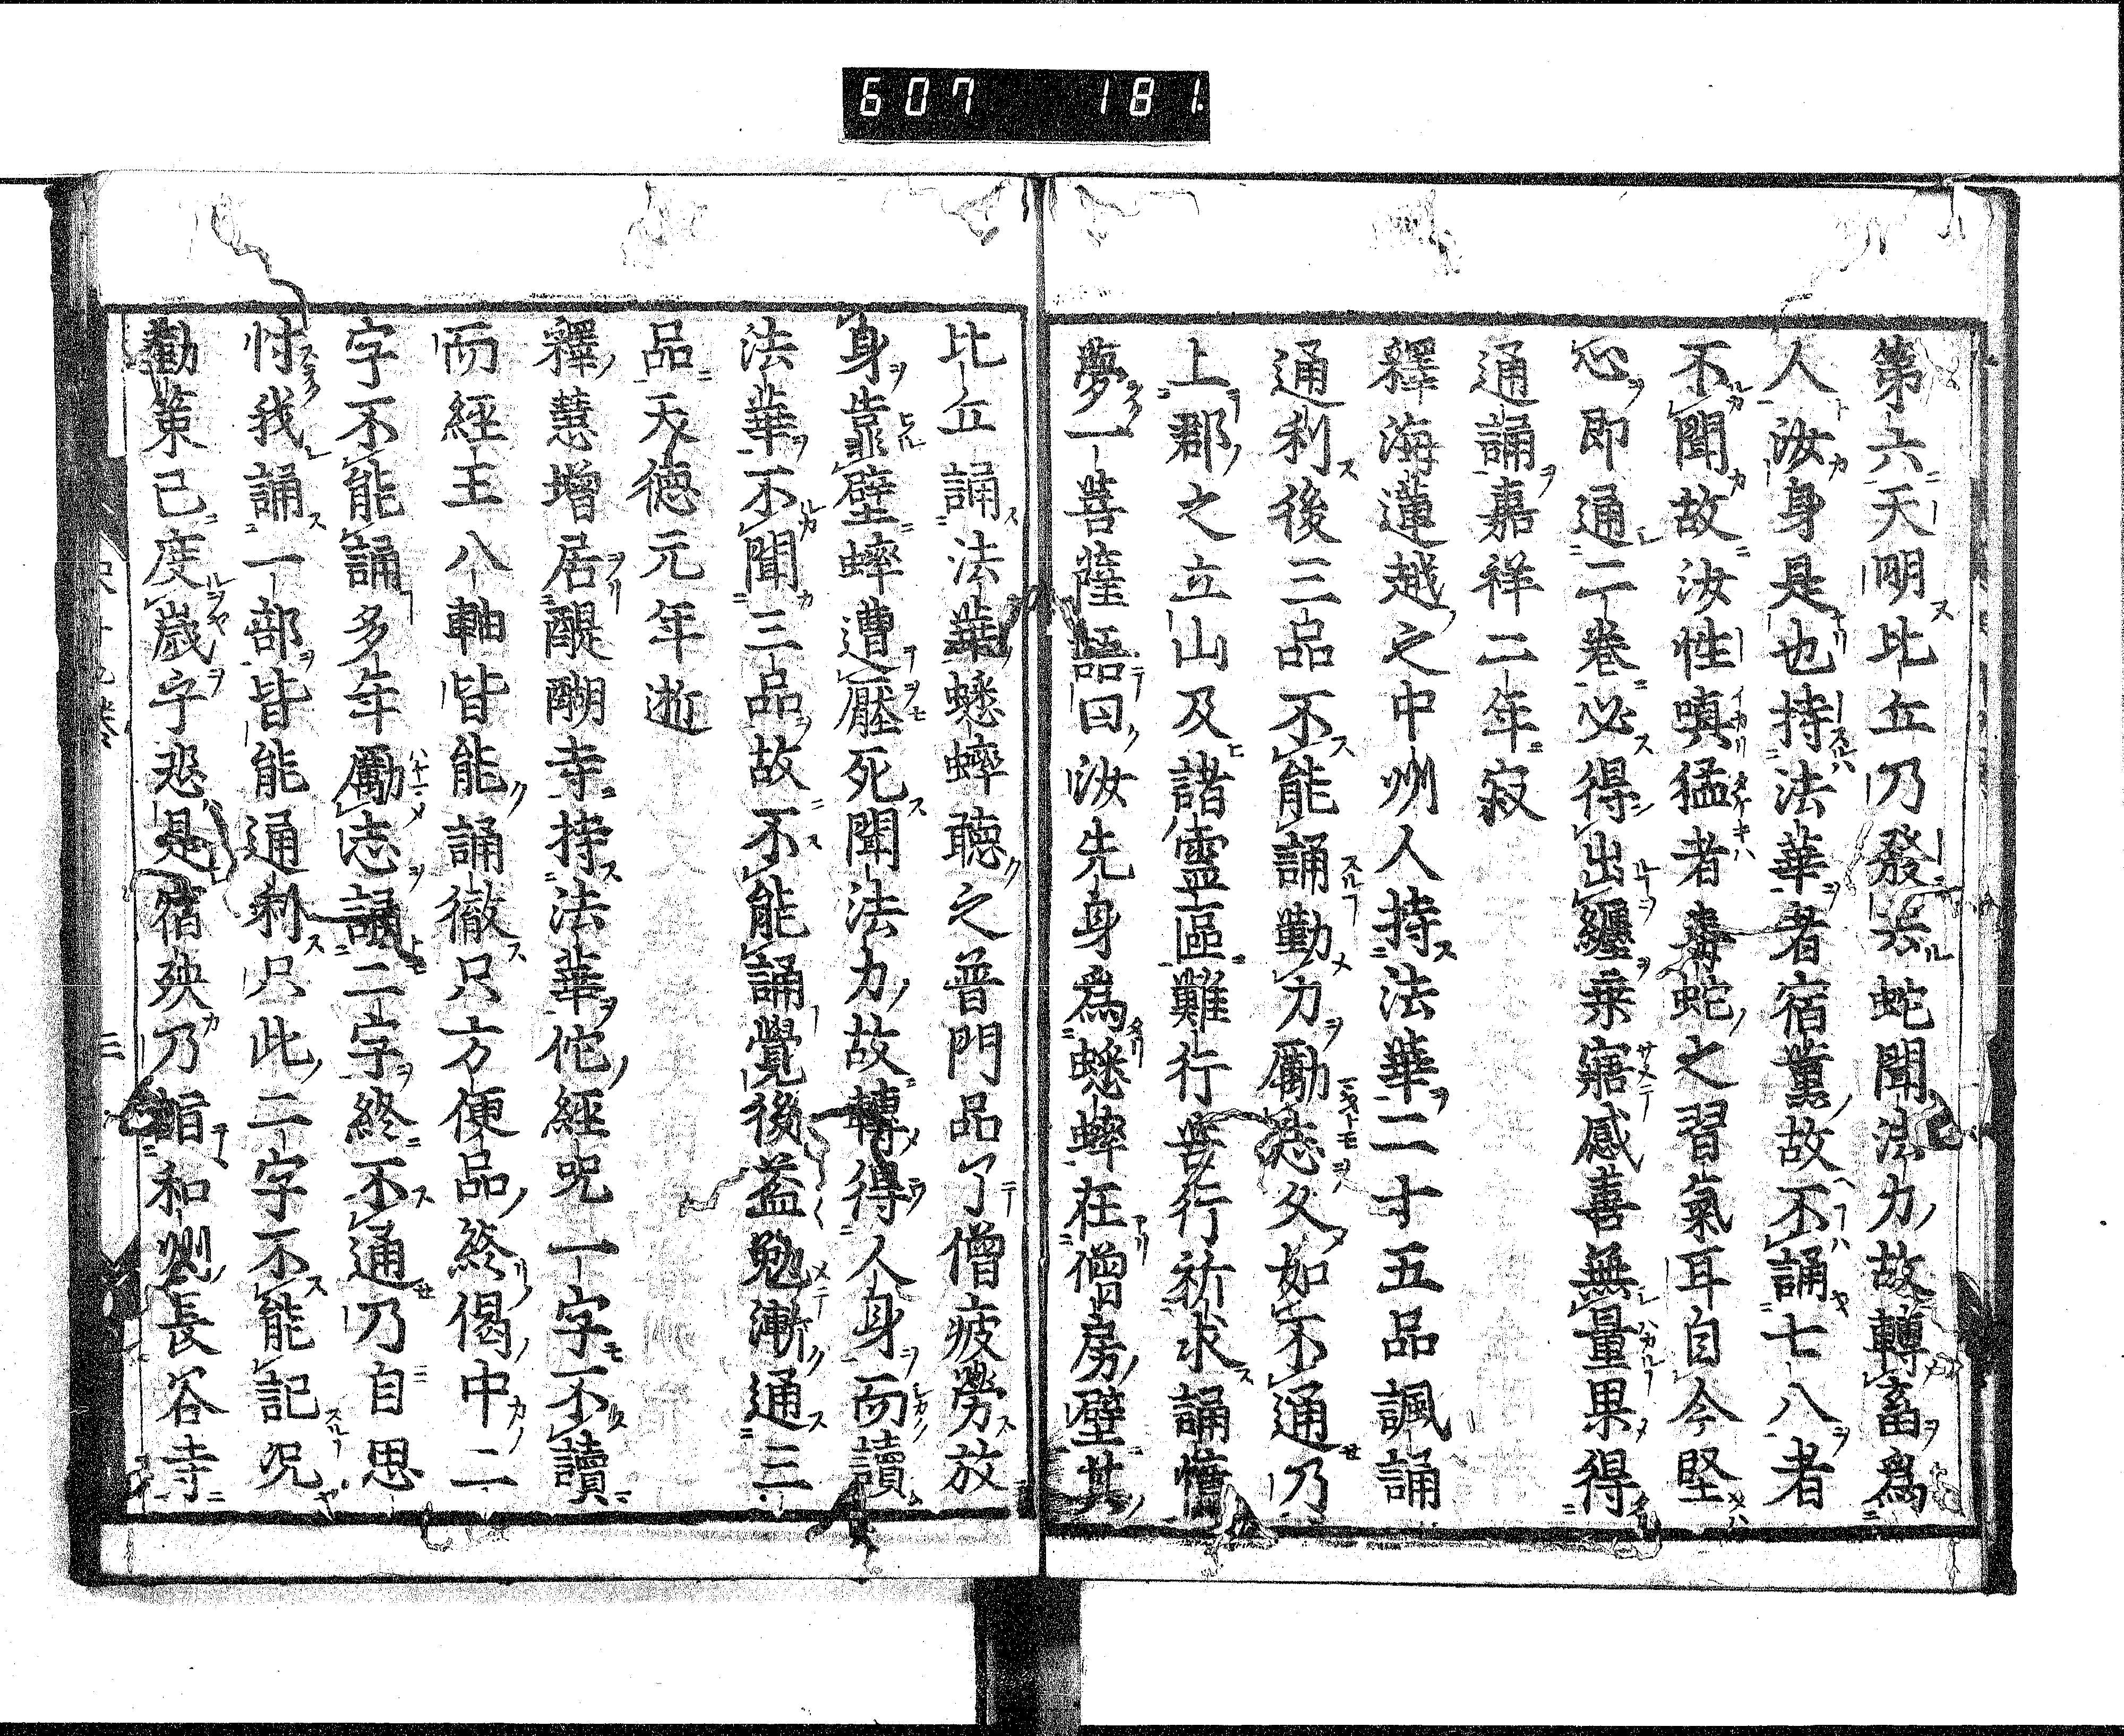 607 181
第六天明比丘乃發去蛇聞法力故轉畜爲
人汝身是也持法華者宿薰故不誦七八者
不聞故汝性嗔猛者毒蛇之習氣耳自今堅
心即通二卷必得出纏乗寤感喜無量果得
通誦嘉祥二年寂
釋海蓮越之中州人持法華二十五品諷誦
通利後三品不能誦勤力勵懸久如不通乃
上郡之立山及諸靈區難行苦行祈求誦憶
夢一菩薩語曰汝先身爲蟋蟀在僧房壁其
比丘誦法華蟋蟀聴之普門品了僧疲勞放
身靠壁蟀遭壓死聞法力故轉得人身而讀
法華不聞三品故不能誦覺後益勉漸通三
品天徳元年逝
釋慧增居醍醐寺持法華佗經咒一字不讀
而經王八軸皆能誦徹只方便品終偈中二
字不能誦多年勵志誦二字終不通乃自思
忖我誦一部皆能通利只此二字不能記況
勸策已度歲乎恐是宿殃乃詣和州長谷寺